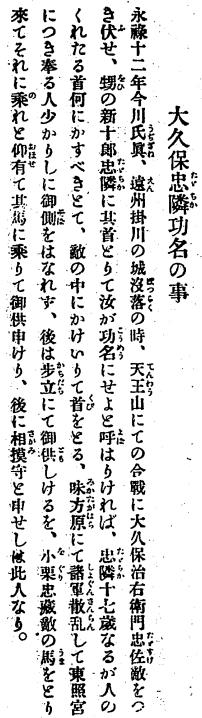 大久保忠隣功名の事
永祿十二年今川氏眞、遠州掛川の城沒落の時、天王山にての合戰に大久保治右衞門忠佐敵をつ
き伏せ、甥の新十郎忠隣に其首とりて汝が功名にせよと呼はりければ、忠隣十七歲なるが人の
くれたる首何にかすべきとて、敵の中にかけいりて首をとる、味方原にて諸軍散亂して東照宮
につき奉る人少かりしに御側をはなれず、後は步立にて御供しけるを、小栗忠藏敵の馬をとり
來てそれに乘れと仰有て其馬に乘りて御供申けり、後に相摸守と申せしは此人なり。